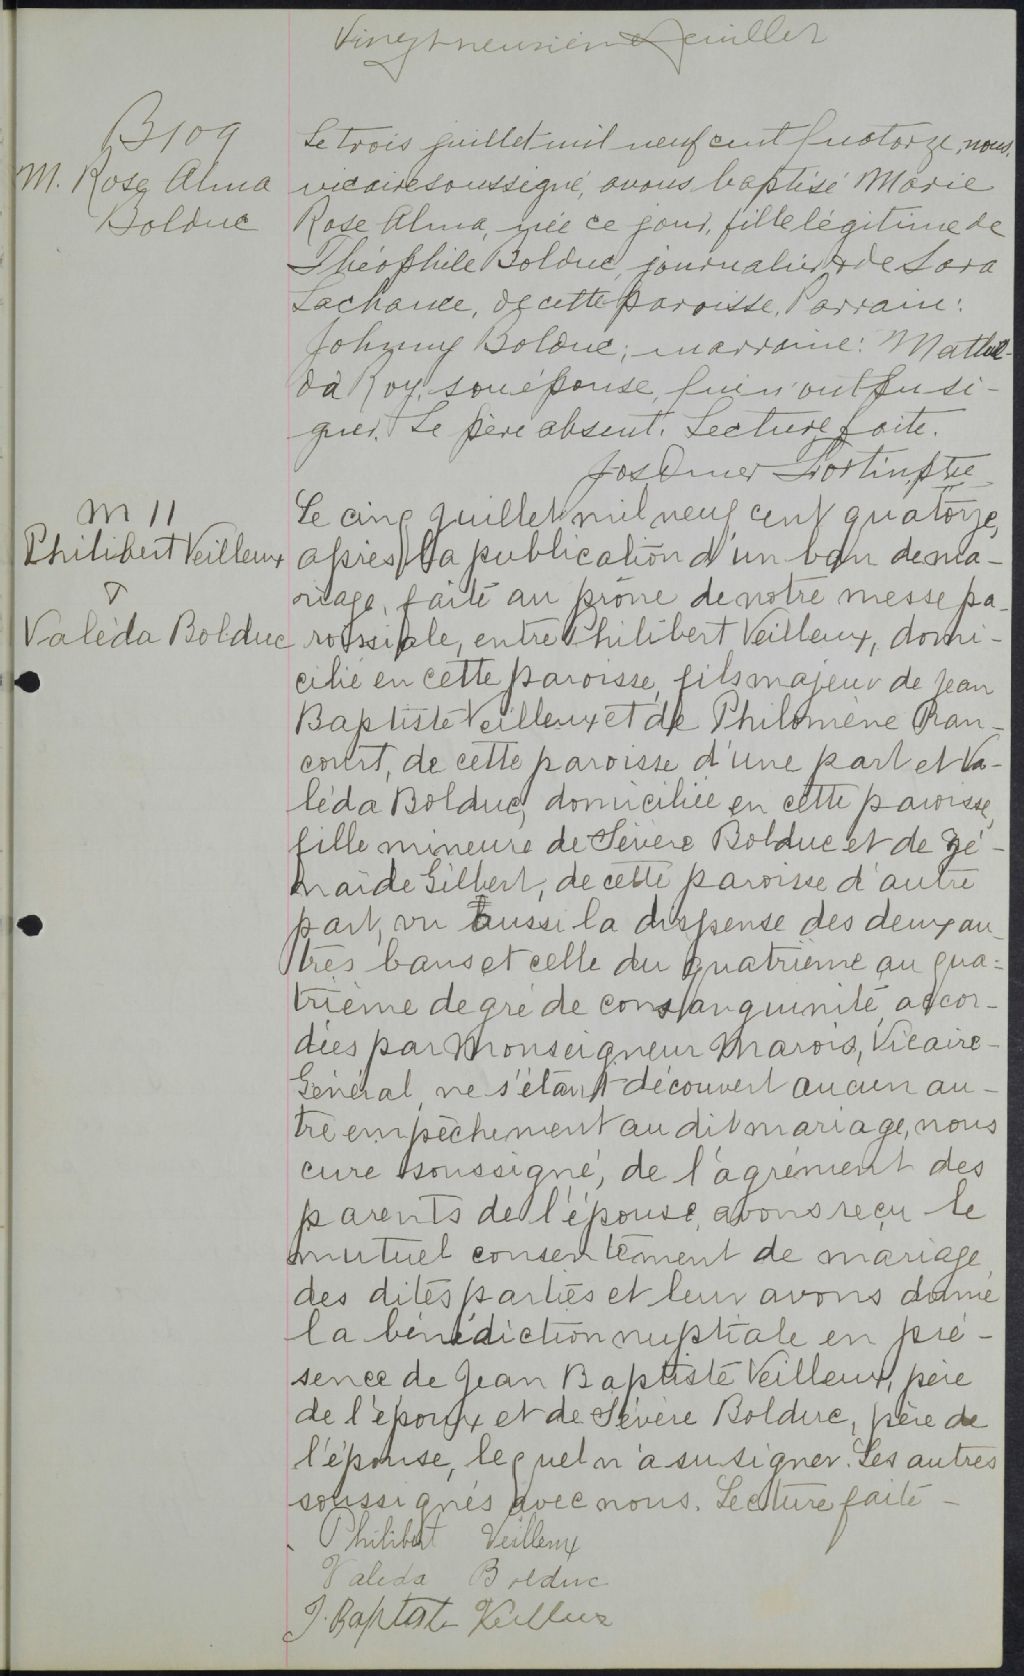 Vingt neuvième feuillet
B109
M. Rose Alma
Bolduc
Le trois juillet mil neuf cent quatorze, nous,
vicaire soussigné, avons baptisé Marie
Rose Alma, née ce jour, fille légitime de
Théophile Bolduc, journalier & de Lora
Lachance, de cette paroisse. Parrain:
Johnny Bolduc; marraine: Mathil-
da Roy, son épouse, qui n'ont su si-
gner. Le père absent. Lecture faite.
Jos Omer Fortin, ptre
M 11
Philibert Veilleux
&
Valéda Bolduc
Le cinq juillet mil neuf cent quatorze,
après la publication d'un ban de ma-
riage, faite au prône de notre messe pa-
roissiale, entre Philibert Veilleux, domi-
cilié en cette paroisse, fils majeur de Jean
Baptiste Veilleux et de Philomène Ran-
court, de cette paroisse d'une part et Va-
léda Bolduc, domiciliée en cette paroisse,
fille mineure de Sévère Bolduc et de Zé-
naïde Gilbert, de cette paroisse d'autre
part, vu aussi la dispense des deux au-
tres bans et celle du quatrième au qua-
trième degré de consanguinité, accor-
dées par Monseigneur Marois, Vicaire-
Général, ne s'étant découvert aucun au-
tre empêchement au dit mariage, nous
curé soussigné, de l'agrément des
parents de l'épouse, avons reçu le
mutuel consentement de mariage
des dites parties et leur avons donné
la bénédiction nuptiale en pré-
sence de Jean Baptiste Veilleux, père
de l'époux et de Sévère Bolduc, père de
l'épouse, lequel n'a su signer. Les autres
soussignés avec nous. Lecture faite -
Philibert Veilleux
Valéda Bolduc
J. Baptiste Veilleux